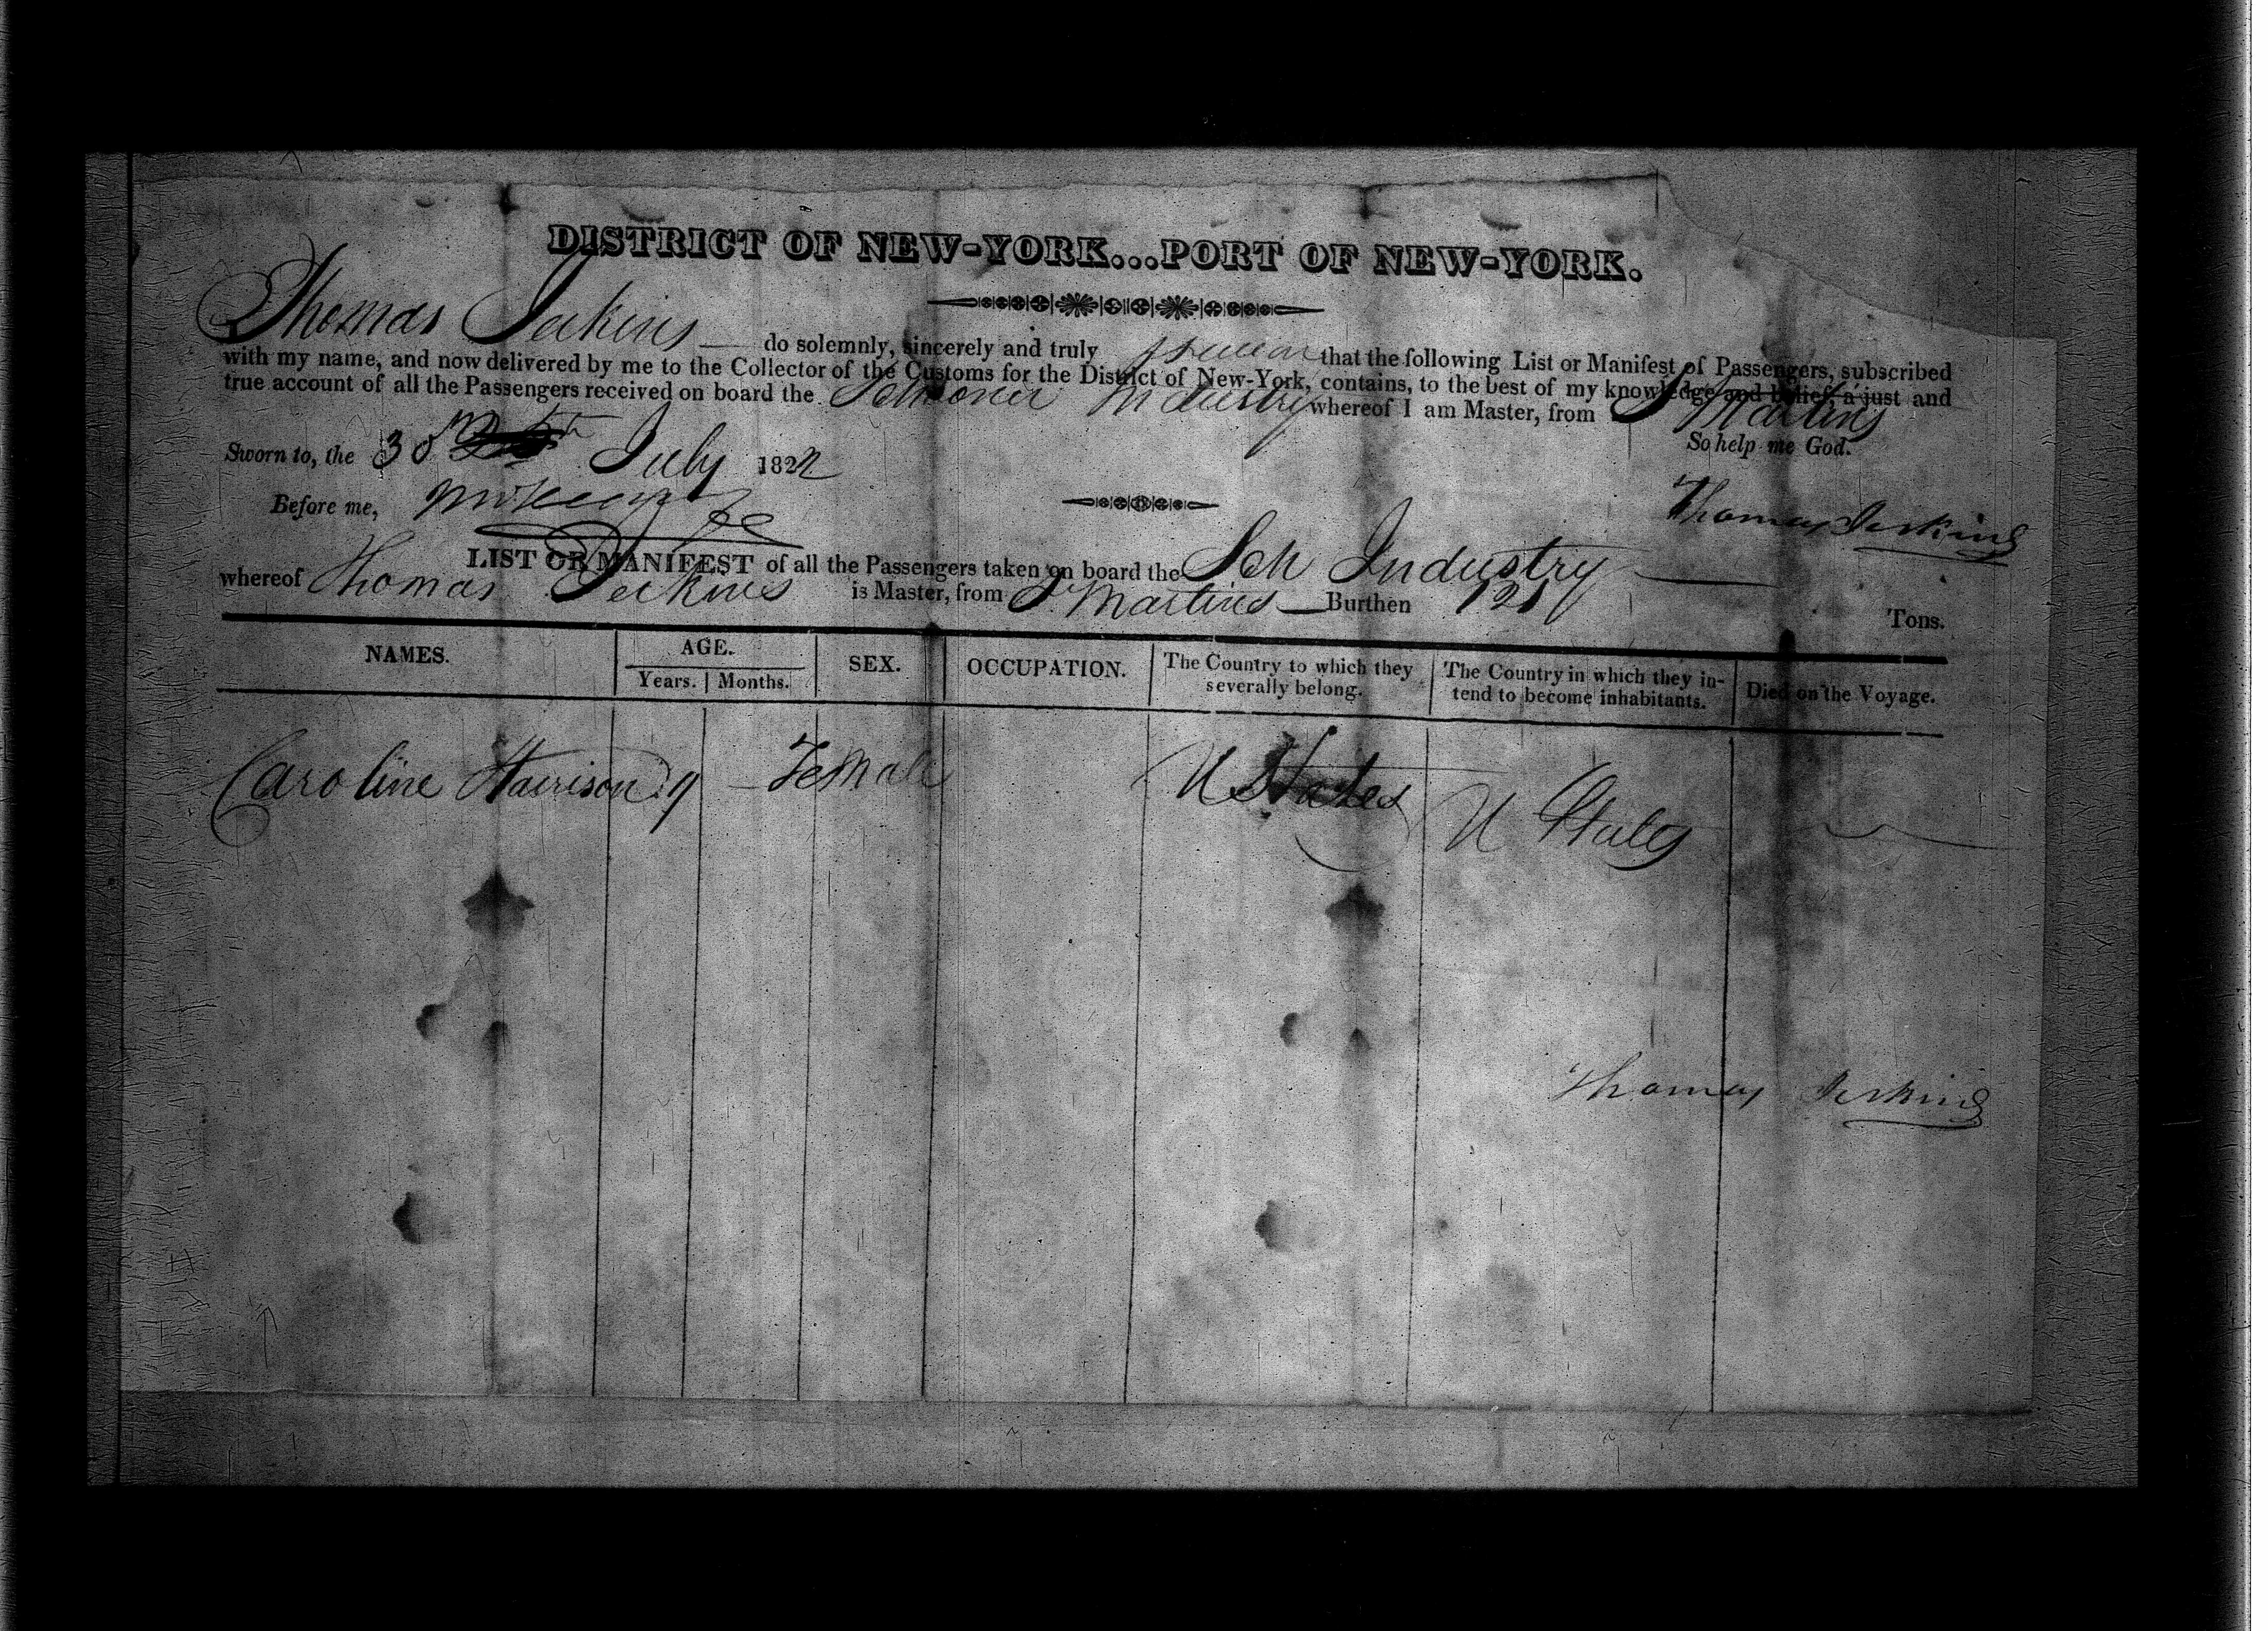 DISTRICT OF NEW-YORK...PORT OF NEW-YORK.
Thomas Jerkins do solemnly, sincerely and truly swear that the following List or Manifest of Passengers, subscribed
with my name, and now delivered by me to the Collector of the Customs for the District of New-York, contains, to the best of my knowledge and belief, a just and
true account of all the Passengers received on board the Schooner Industry whereof I am Master, from St Martins
So help me God.
Sworn to, the 30 July 1822
Thomas Jerkins
Before me,
LIST OR MANIFEST of all the Passengers taken on board the Sch Industry
whereof Thomas Jerkins is Master, from St Martins Burthen 121 Tons.
NAMES. AGE. SEX. OCCUPATION. The Country to which they severally belong. The Country in which they intend to become inhabitants. Died on the Voyage.
Years. Months.
Caroline Harrison Female U States U States
Thomas Jerkins